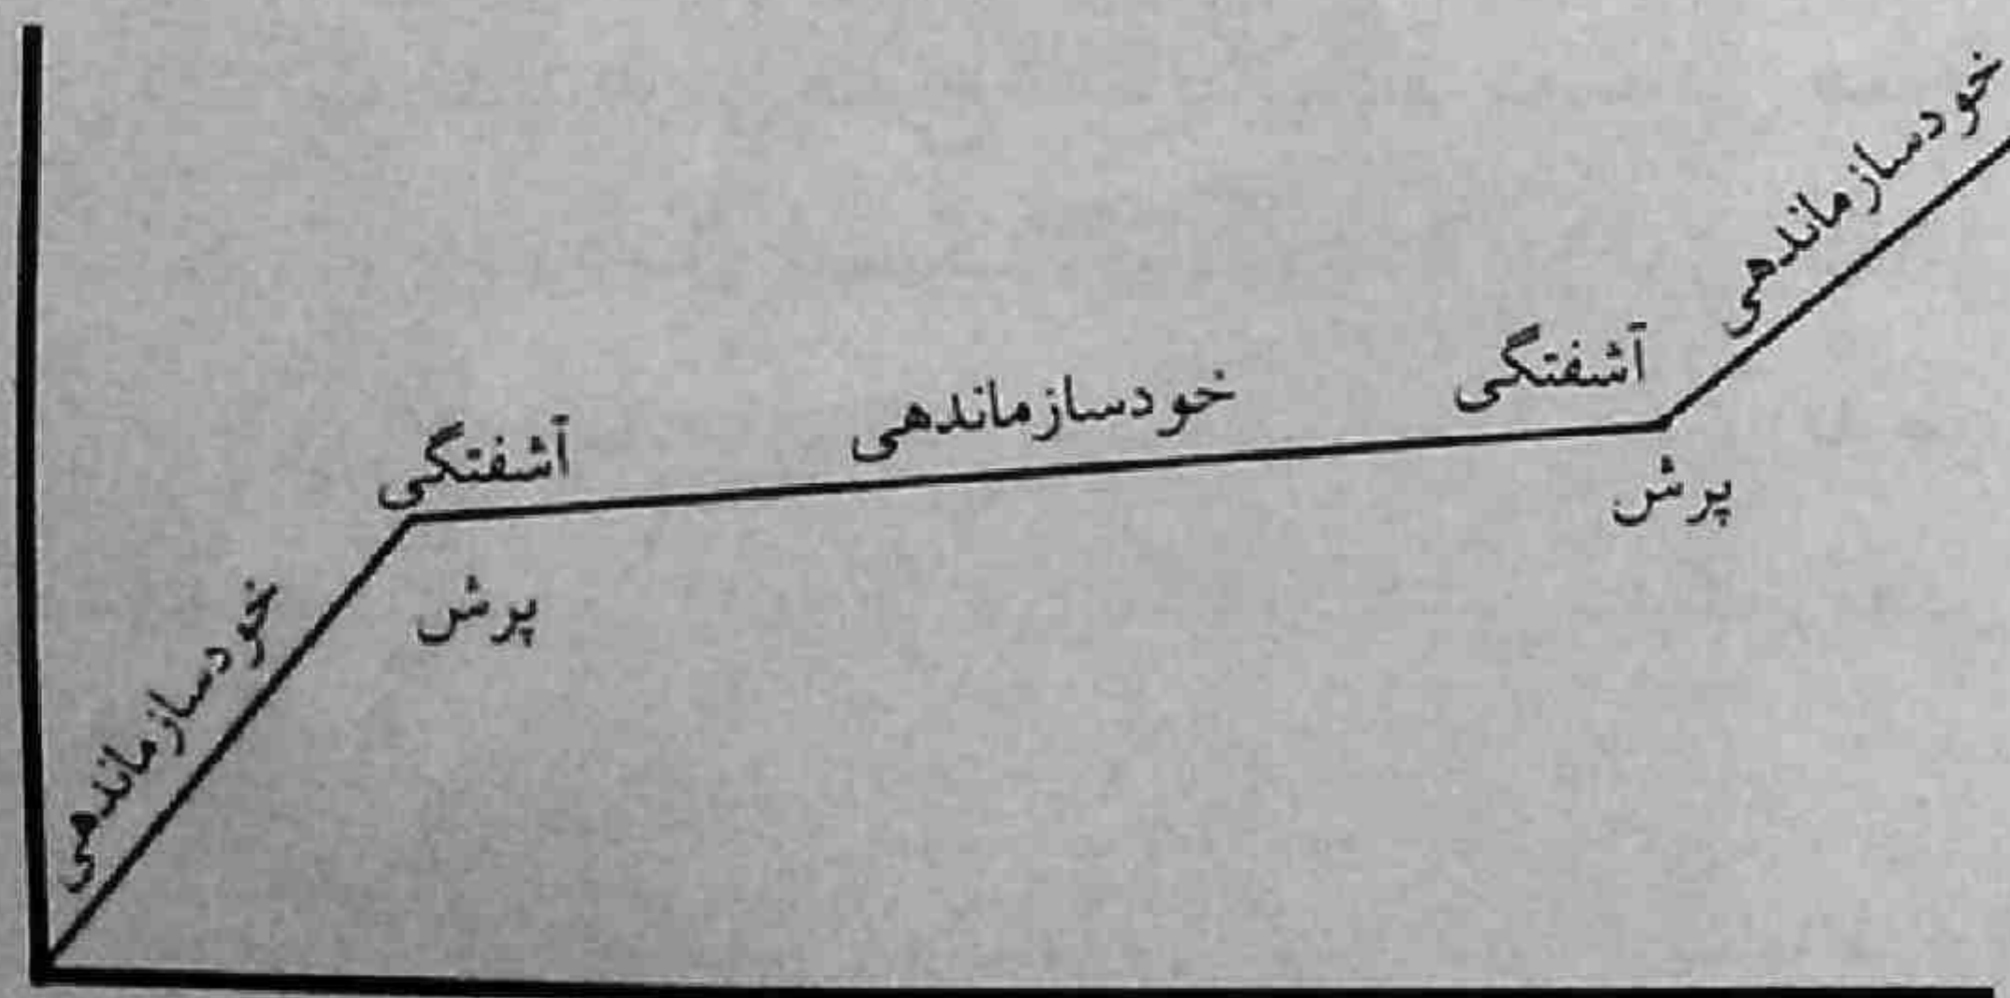 خودسازماندهی
آشفتگی
خودسازماندهی
آشفتگی
پرش
پرش
خودسازماندهی